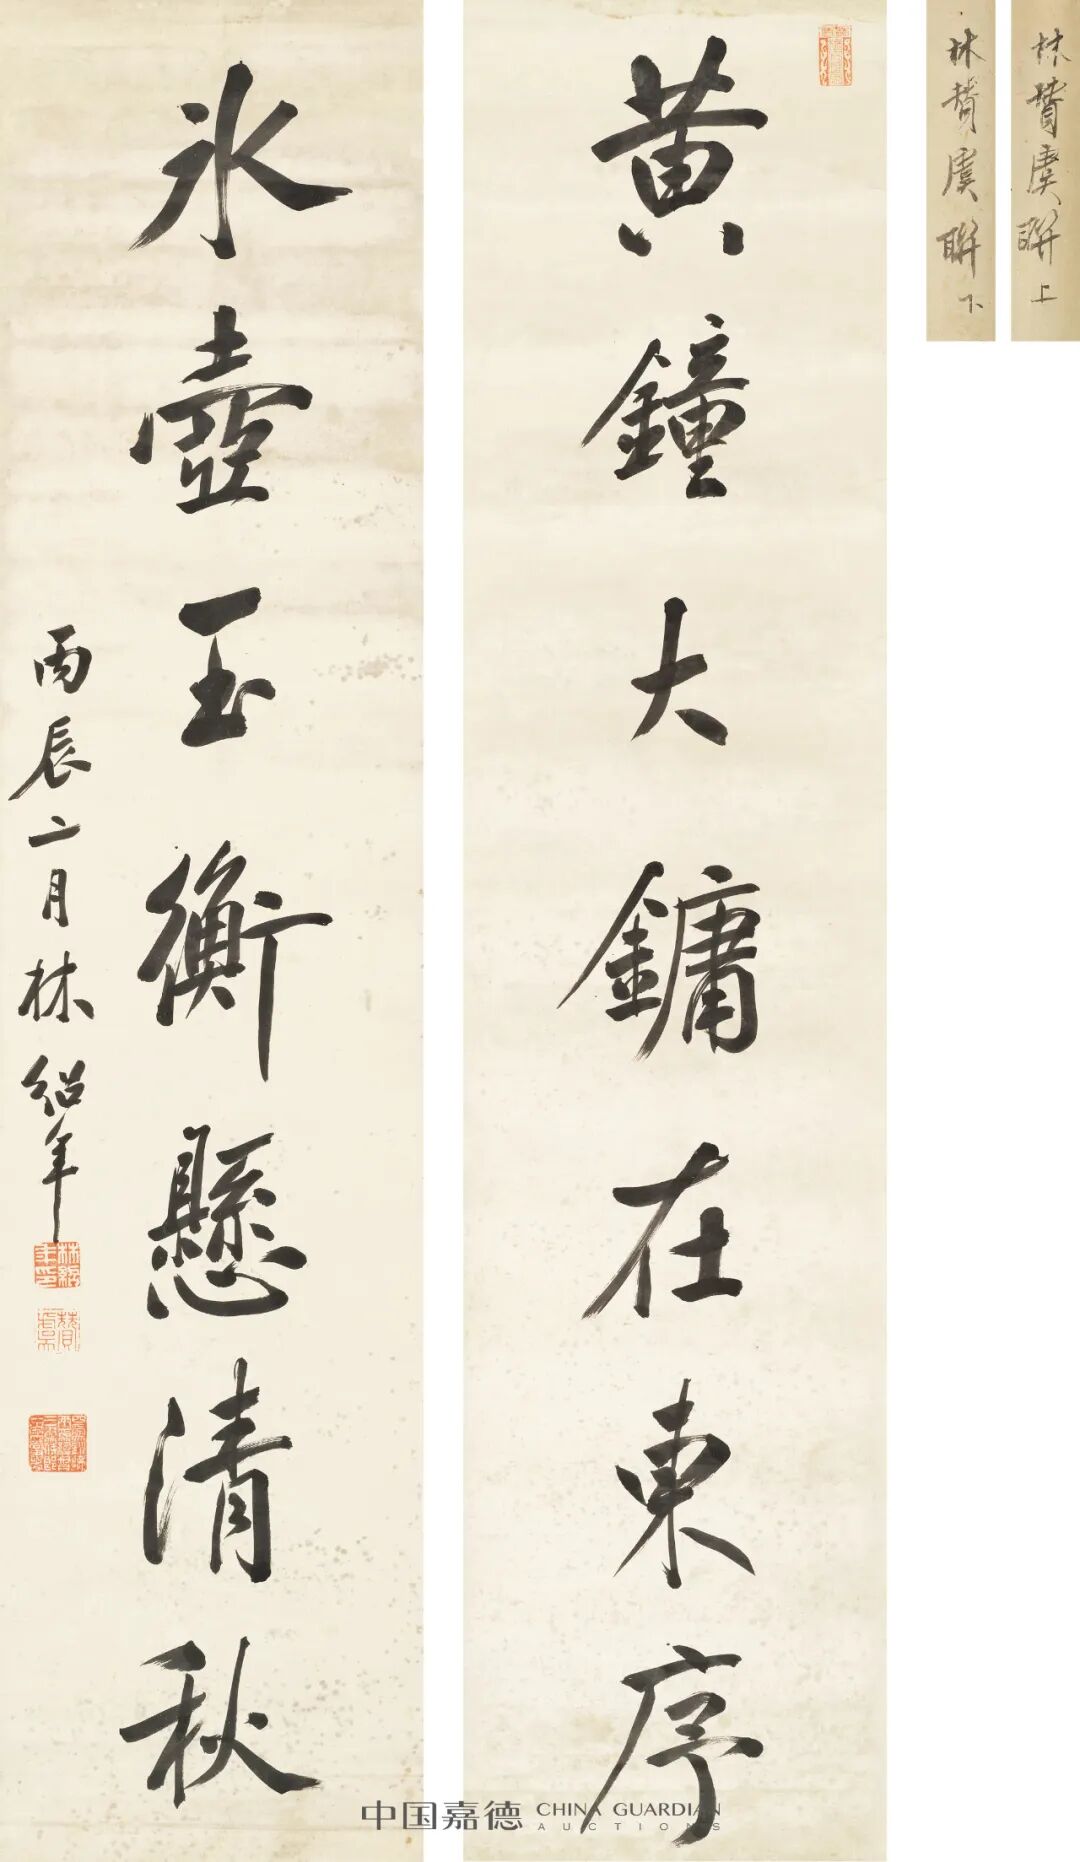 黄鐘大鏞在東序
冰壺玉衡懸清秋
丙辰二月林紹年
林紹年印
贊虞
林贊虞聯上
林贊虞聯下
中国嘉德 CHINA GUARDIAN
AUCTIONS